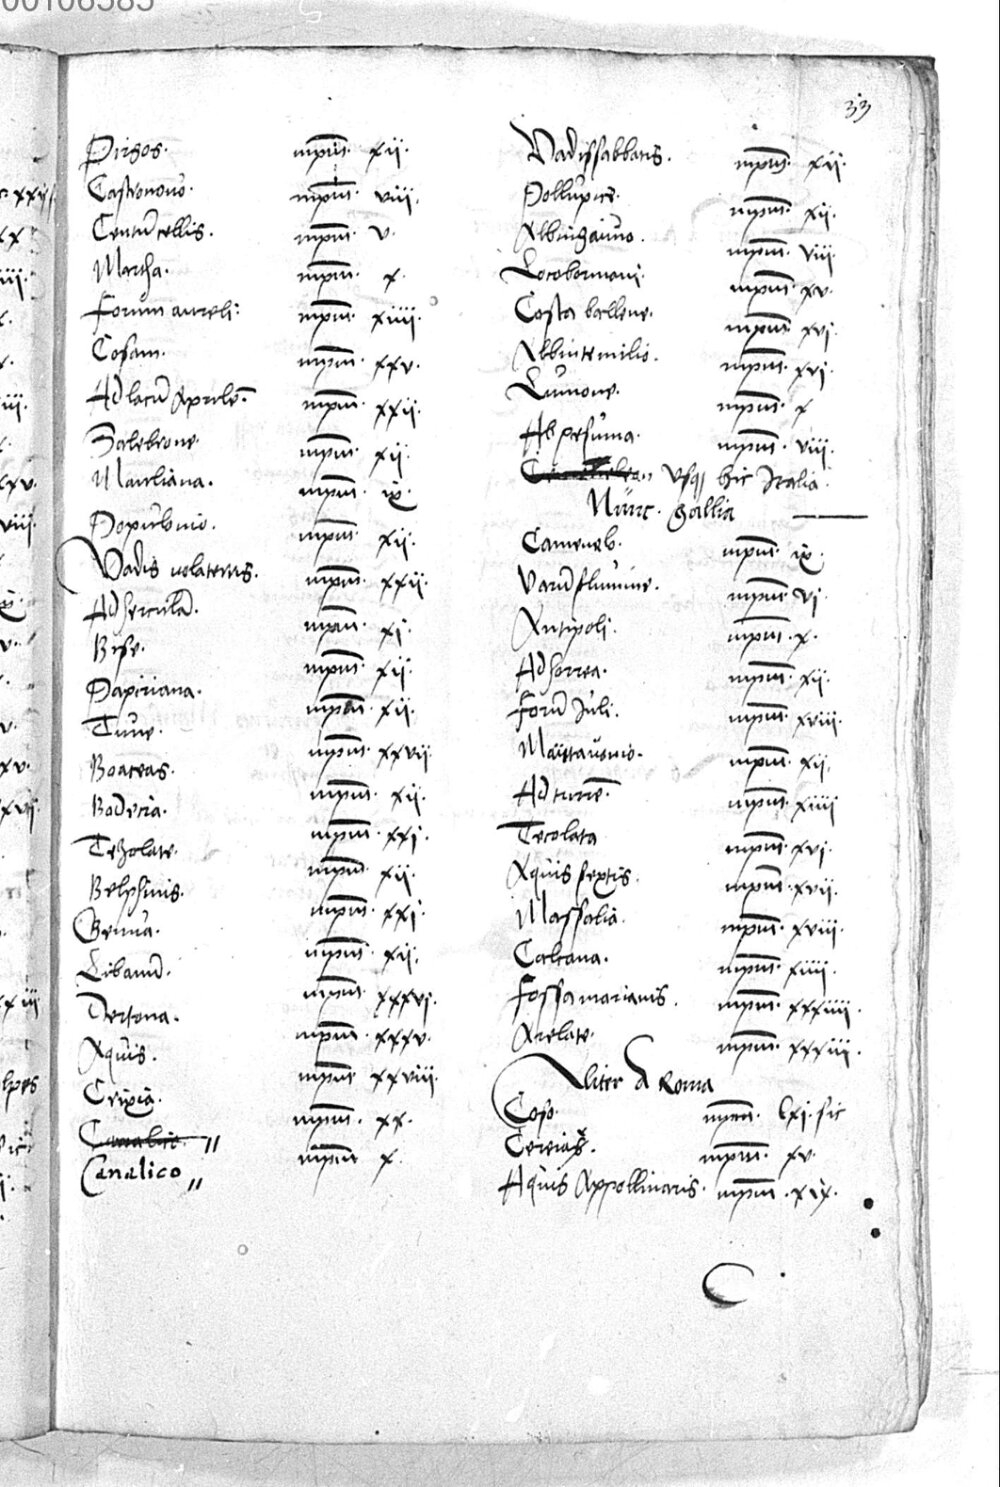 00106385
33
Pirgos. mpm̄. xii.
Castronouo. mpm̄. viii.
Centu᷑cellis. mpm̄. v.
Martha. mpm̄. x.
Forum aureli. mpm̄. xiiii.
Cosam. mpm̄. xxv.
Ad lacu᷑ Aprile᷑. mpm̄. xxii.
Salebrone. mpm̄. xii.
Manliana. mpm̄. ix.
Populonio. mpm̄. xii.
Vadis volaterris. mpm̄. xxii.
Ad herculē. mpm̄. xi.
Pise. mpm̄. xii.
Papiriana. mpm̄. xii.
Lune. mpm̄. xxvii
Boaceas. mpm̄. xii.
Bodetia. mpm̄. xxi.
Tegolate. mpm̄. xii.
Delphinis. mpm̄. xxi.
Genua. mpm̄. xii.
Libarnū. mpm̄. xxxvi.
Dertona. mpm̄. xxxv.
Aquis. mpm̄. xxviii.
Crixia. mpm̄. xx.
mpm̄ x.
Canalico
Vadis sabbatis. mpm̄. xii.
Pollupice. mpm̄. xii.
Albingauno. mpm̄. viii.
Lucobormani. mpm̄. xv.
Costa ballene. mpm̄. xvi.
Albintemilio. mpm̄. xvi.
Lumone. mpm̄. x
Alpesuma. mpm̄. viii.
Vsq hic Italia.
Nunc. Gallia
Cameneb. mpm̄. ix.
Varū flumine. mpm̄. vi.
Antipoli. mpm̄. x.
Ad horrea. mpm̄. xii.
Forū Iuli. mpm̄. xviii.
mpm̄. xii.
Ad turrē. mpm̄. xiiii
Tecolata mpm̄. xvi.
Aquis sextis. mpm̄. xvii.
Massalia. mpm̄. xviii.
Calcaria. mpm̄. xiiii.
Fossa marianis. mpm̄. xxxiiii.
Arelate. mpm̄. xxxiii.
Aliter A Roma
Coso. mpm̄. lxi. sic
Cereias. mpm̄. xv.
Aquis Appollinaris. mpm̄. xix.